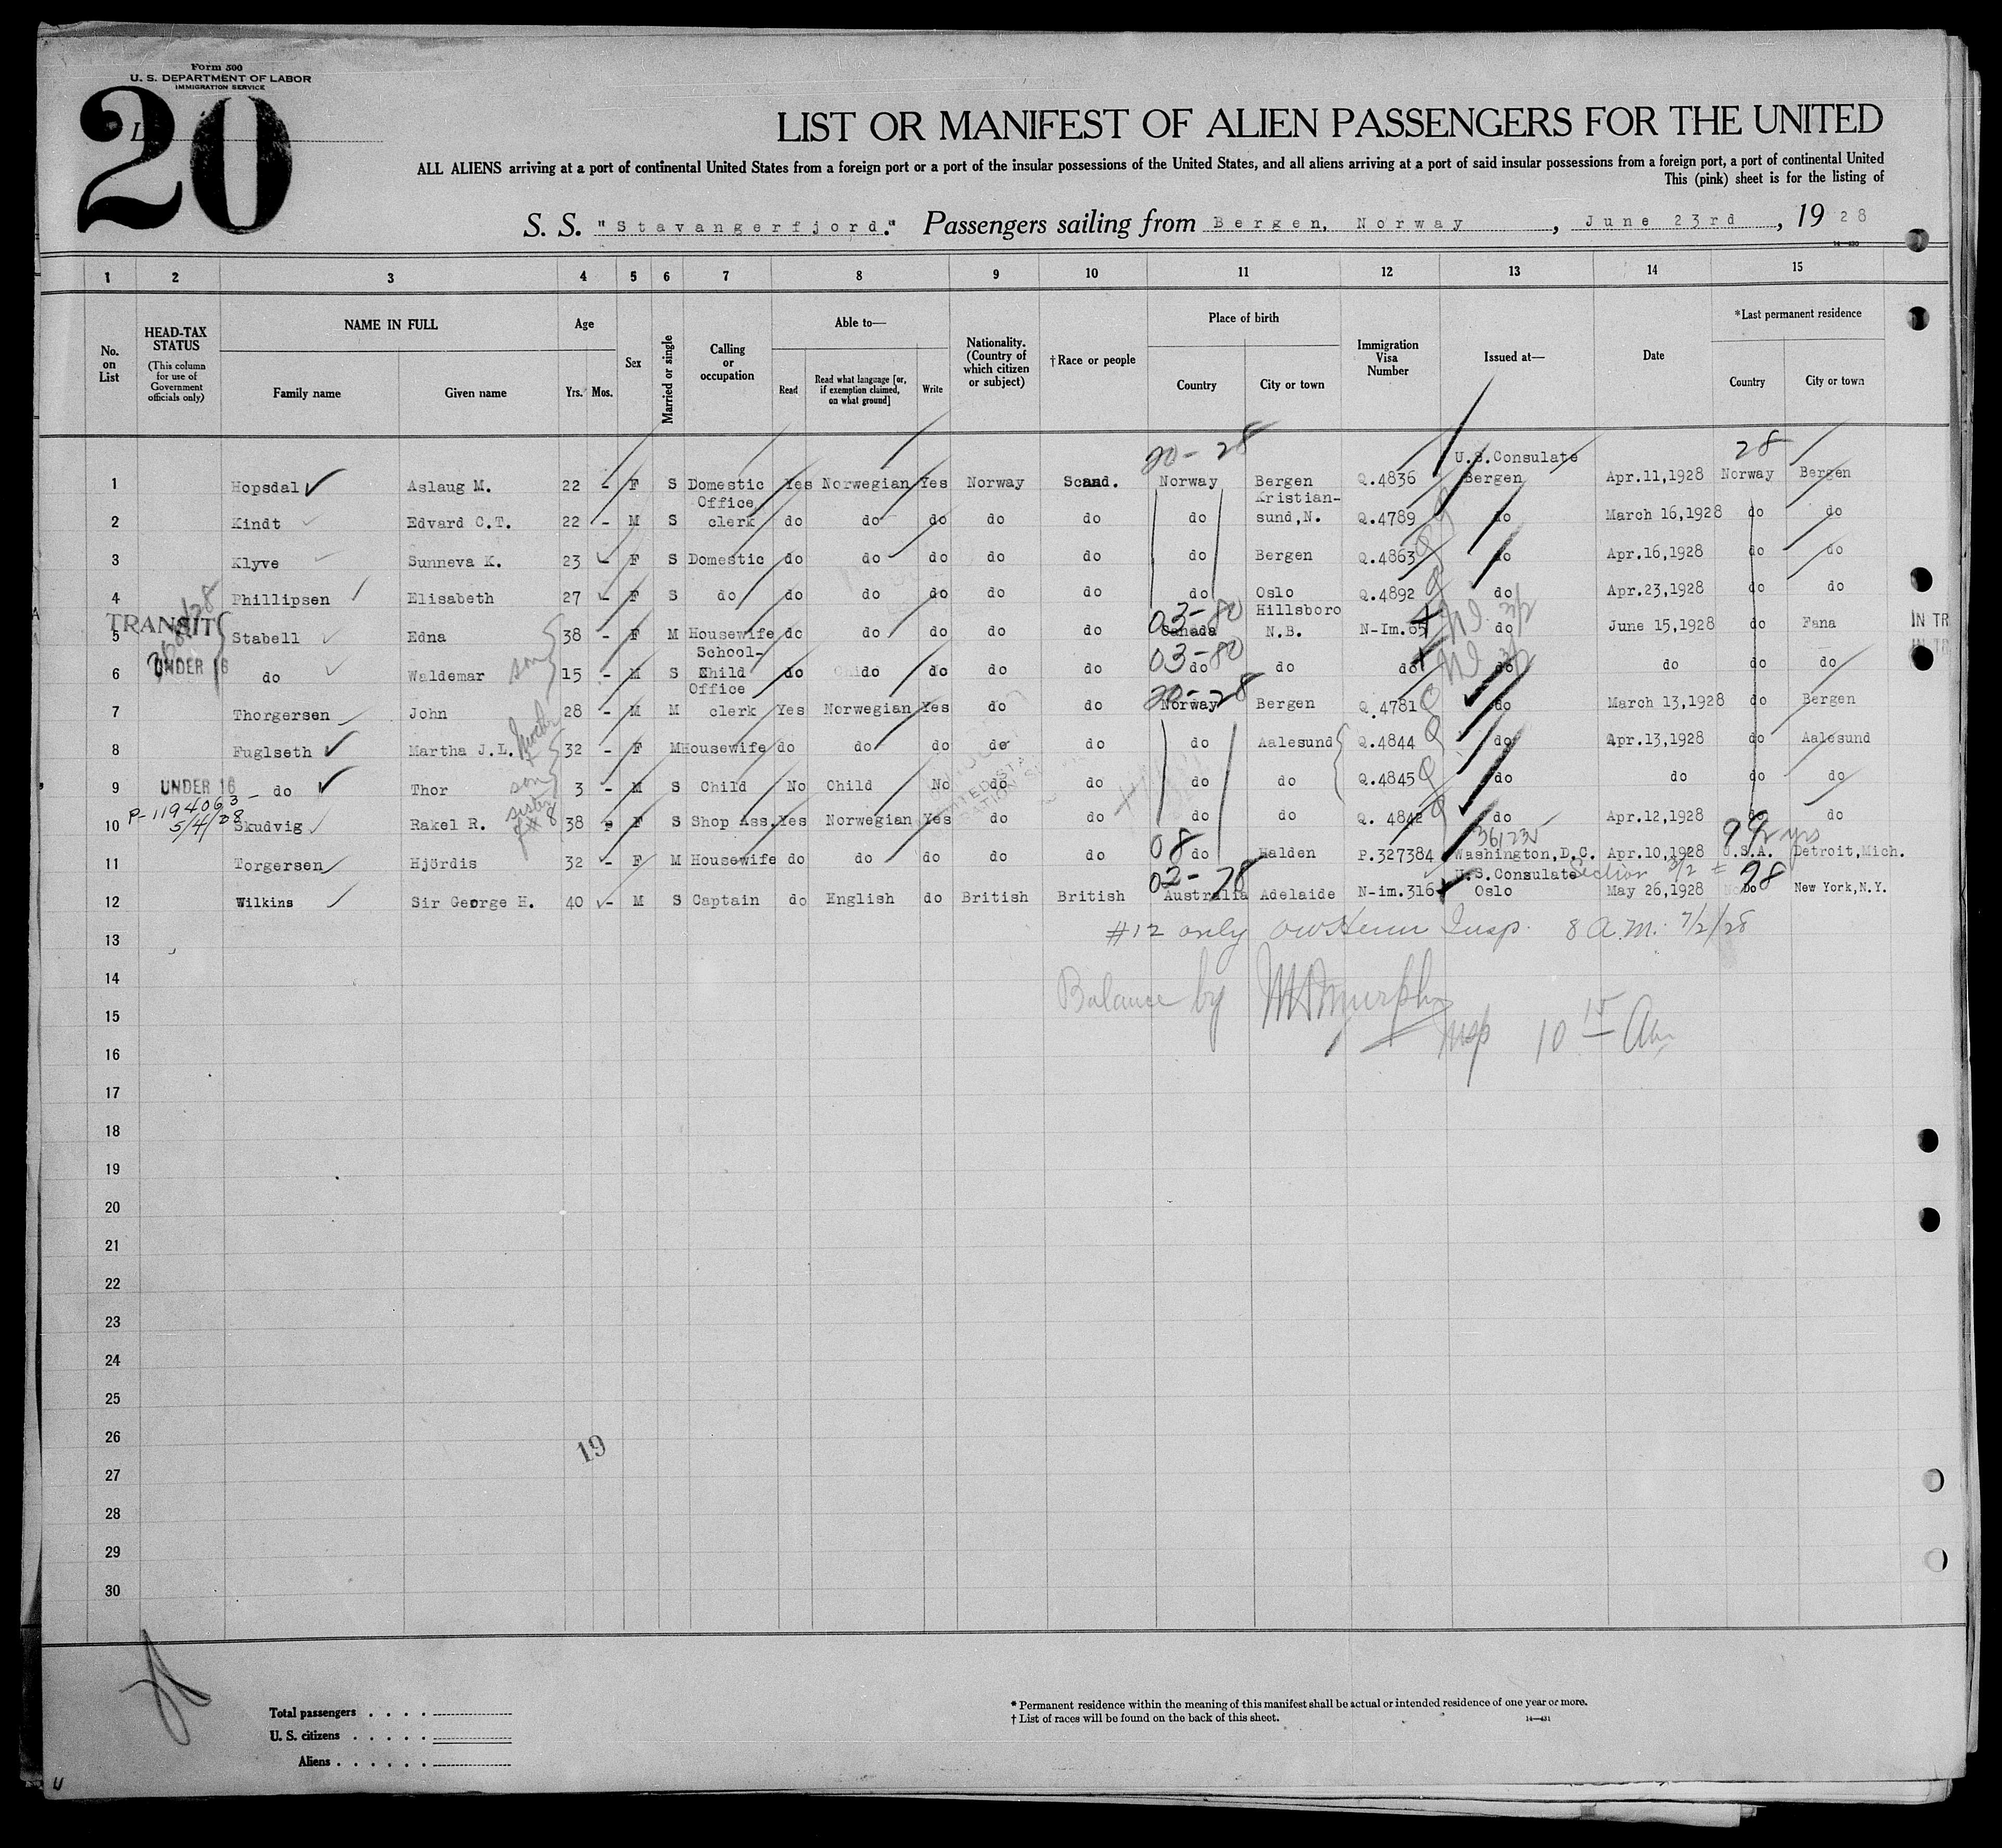 Form 500
U. S. DEPARTMENT OF LABOR
IMMIGRATION SERVICE
20
LIST OR MANIFEST OF ALIEN PASSENGERS FOR THE UNITED
ALL ALIENS arriving at a port of continental United States from a foreign port or a port of the insular possessions of the United States, and all aliens arriving at a port of said insular possessions from a foreign port, a port of continental United
This (pink) sheet is for the listing of
S. S. "Stavangerfjord." Passengers sailing from Bergen, Norway, June 23rd, 1928
14—430
1 2 3 4 5 6 7 8 9 10 11 12 13 14 15
No. on List
HEAD-TAX STATUS (This column for use of Government officials only)
NAME IN FULL
Family name
Given name
Age
Yrs. Mos.
Sex
Married or single
Calling or occupation
Able to—
Read
Read what language [or, if exemption claimed, on what ground]
Write
Nationality. (Country of which citizen or subject)
†Race or people
Place of birth
Country
City or town
Immigration Visa Number
Issued at—
Date
*Last permanent residence
Country
City or town
20-28
28
1 Hopsdal Aslaug M. 22 - F S Domestic Yes Norwegian Yes Norway Scand. Norway Bergen Q.4836 U.S.Consulate Bergen Apr.11,1928 Norway Bergen
2 Kindt Edvard C.T. 22 - M S Office clerk do do do do do do Kristian-sund,N. Q.4789 do March 16,1928 do do
3 Klyve Sunneva K. 23 - F S Domestic do do do do do do Bergen Q.4863 do Apr.16,1928 do do
4 Phillipsen Elisabeth 27 - F S do do do do do do do Oslo Q.4892 do Apr.23,1928 do do
TRANSIT
03-80
5 Stabell Edna 38 - F M Housewife do do do do do Canada Hillsboro N.B. N-Im.65 do June 15,1928 do Fana
IN TR
UNDER 16
03-80
6 do Waldemar son 15 - M S School-Child do do do do do do do do do do do do
IN TR
20-28
7 Thorgersen John 28 - M M Office clerk Yes Norwegian Yes do do Norway Bergen Q.4781 do March 13,1928 do Bergen
8 Fuglseth Martha J.L. mother 32 - F M Housewife do do do do do do Aalesund Q.4844 do Apr.13,1928 do Aalesund
UNDER 16
9 do Thor son 3 - M S Child No Child No do do do do Q.4845 do do do do
P-1194063
5/4/28
10 Skudvig Rakel R. sister of #8 38 F S Shop Ass. Yes Norwegian Yes do do do do Q. 4842 do Apr.12,1928 do do
08
99 yrs
11 Torgersen Hjördis 32 - F M Housewife do do do do do do Halden P.327384 Washington,D.C. Apr.10,1928 U.S.A. Detroit,Mich.
02-78
Section 3/2 = 98
12 Wilkins Sir George H. 40 - M S Captain do English do British British Australia Adelaide N-im.316 U.S.Consulate Oslo May 26,1928 Do New York,N.Y.
13 #12 only Insp. 8 a.m. 7/2/28
14 Balance by Murphy
15 Insp 10 15 Am
16
17
18
19
20
21
22
23
24
25
26
19
27
28
29
30
Total passengers
U. S. citizens
Aliens
* Permanent residence within the meaning of this manifest shall be actual or intended residence of one year or more.
† List of races will be found on the back of this sheet.
14—431